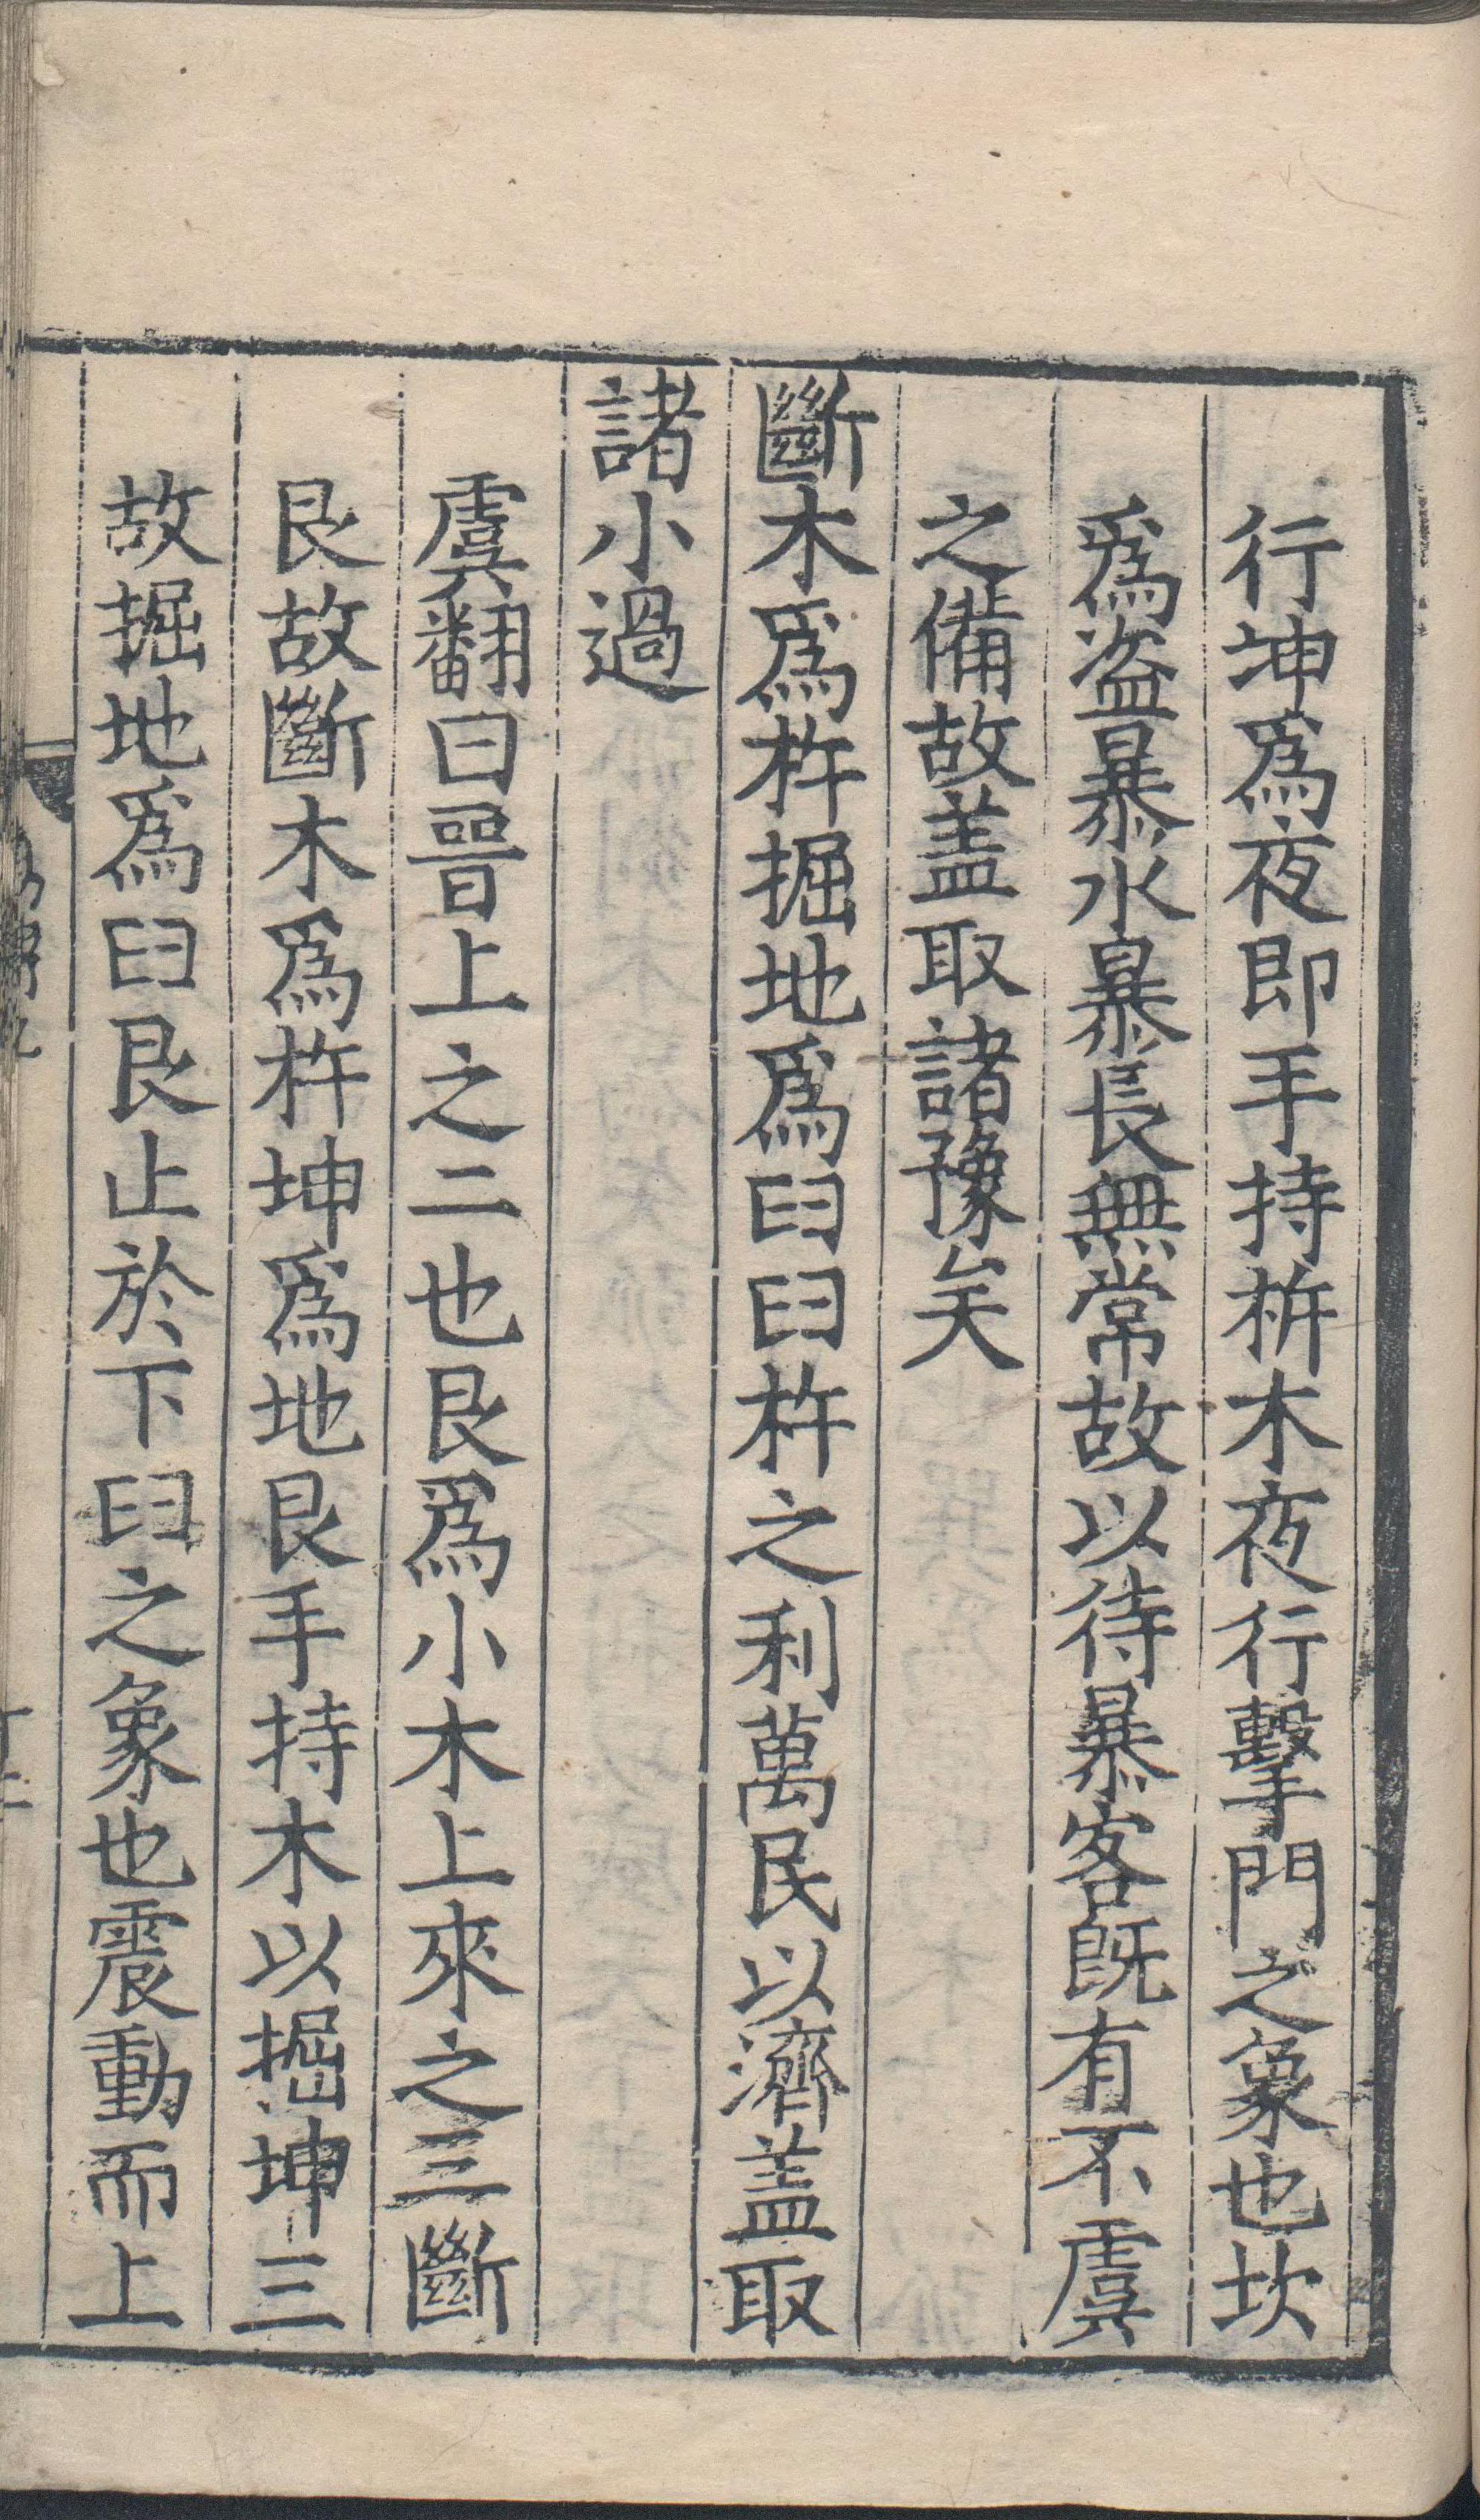 行坤爲夜即手持柝木夜行擊門之象也坎
爲盗暴水暴長無常故以待暴客既有不虞
之備故盖取諸豫矣
斷木爲杵掘地爲臼臼杵之利萬民以濟盖取
諸小過
虞翻曰晉上之二也艮爲小木上來之三斷
艮故斷木爲杵坤爲地艮手持木以掘坤三
故掘地爲臼艮止於下臼之象也震動而上